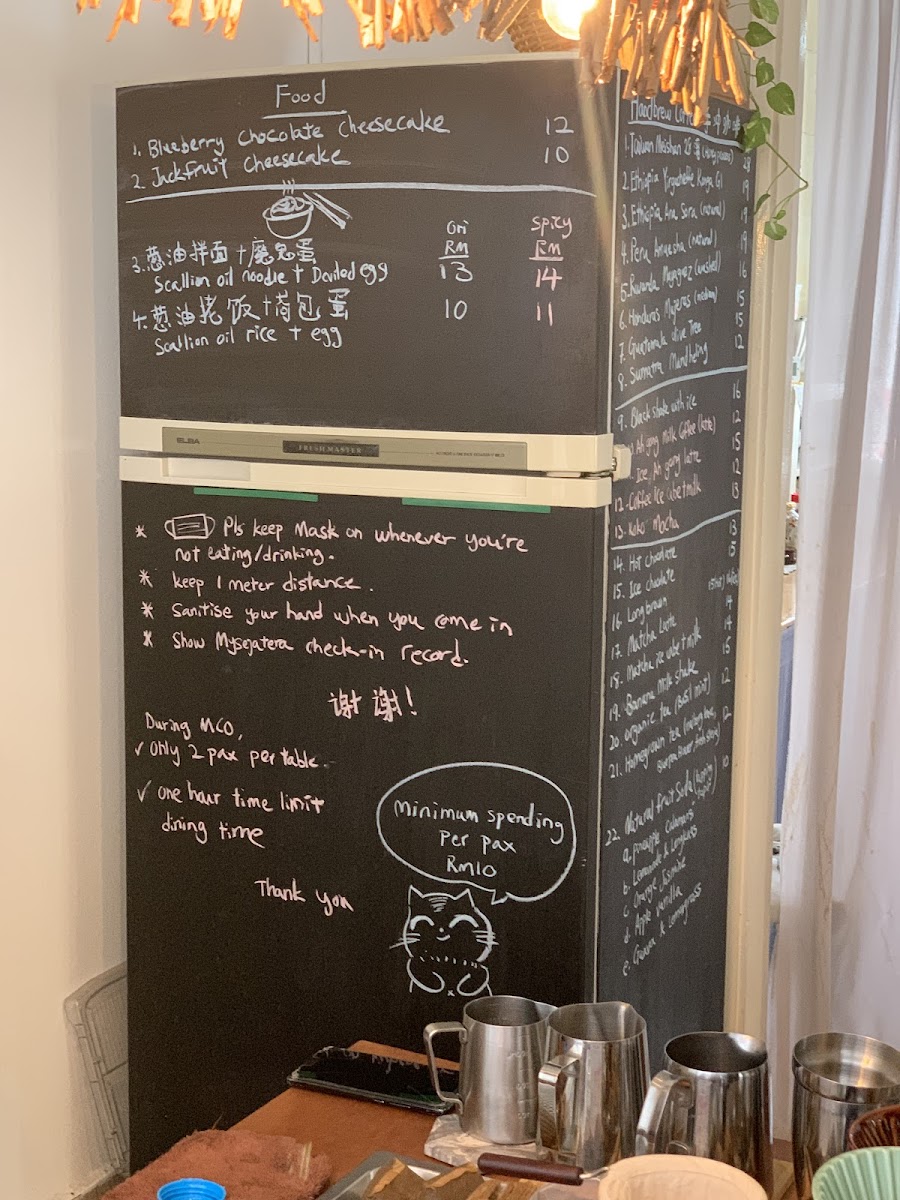 Food
1. Blueberry chocolate cheesecake 12
2. Jackfruit cheesecake 10
Ori Spicy
RM RM
3. 葱油拌面+魔鬼蛋
Scallion oil noodle + Deviled egg 13 14
4. 葱油捞饭+荷包蛋 10 11
Scallion oil rice + egg
ELBA
FRESH MASTER
* Pls keep Mask on whenever you're
not eating/drinking.
* keep 1 meter distance.
* Sanitise your hand when you come in
* Show Mysejatera check-in record.
谢谢!
During MCO,
✓ only 2 pax per table.
✓ one hour time limit
dining time
Thank you
Minimum spending
Per pax
RM10
Handbrew
1. Taiwan Meishan 28
2. Ethiopia Yirgacheffe Konga G1 19
3. Ethiopia Ana Sora (natural) 19
4. Peru (natural) 19
5. Rwanda (washed) 16
6. Honduras 15
7. Guatemala Olive Tree 12
8. Sumatra Mandheling
9. Black shake with ice 16
Ah gong Milk Coffee (latte) 12
Ice Ah gong latte 15
12. Coffee Ice cube + milk 12
13. koko Mocha 13
14. Hot chocolate 13
15. Ice chocolate 15
16. Long brown
17. Matcha Latte 14
18. Matcha ice cube + milk 14
19. Banana milk shake 15
20. organic tea (Basil mint) 12
21. Homegrown tea 12
22. Natural fruit soda 10
a. pineapple
b. Lemonade &
c. Orange Jasmine
d. Apple Vanilla
e. Guava & Lemongrass